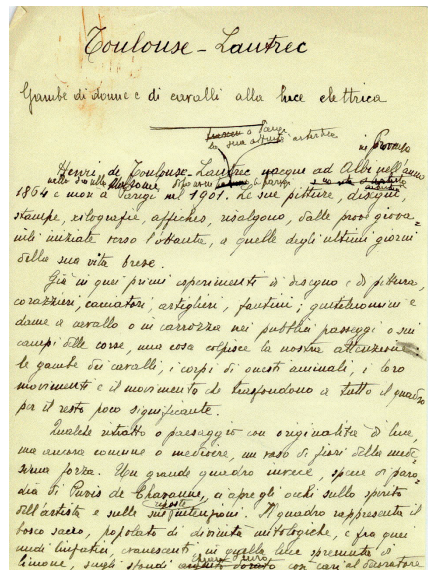 Toulouse-Lautrec
Gambe di donne e di cavalli alla luce elettrica
a Parigi
la sua attività artistica
in Provenza
Henri de Toulouse-Lautrec nacque ad Albi nell'anno
1864 e morì a Parigi nel 1901. Le sue pitture, disegni,
stampe, litografie, affiches, risalgono, dalle prove giova-
nili iniziate verso l'ottanta, a quelle degli ultimi giorni
della sua vita breve.
Già in quei primi esperimenti di disegno e di pittura,
corazzieri, cacciatori, artiglieri, fantini; gentiluomini e
dame a cavallo o in carrozza nei pubblici passeggi o sui
campi delle corse, una cosa colpisce la nostra attenzione:
le gambe dei cavalli, i corpi di questi animali, i loro
movimenti e il movimento che trasfondono a tutto il quadro
per il resto poco significante.
Qualche ritratto o paesaggio con originalità di luce,
ma ancora comune o mediocre, un vaso di fiori della mede-
sima forza. Un grande quadro invece, specie di paro-
dia di Puvis de Chavannes, ci apre gli occhi sullo spirito
dell'artista e sulle riposte intenzioni. Il quadro rappresenta il
bosco sacro, popolato di divinità mitologiche, e fra quei
nudi linfatici, evanescenti in quella luce spremuta di
limone, sugli sfondi chiaro puro così cari al Decoratore